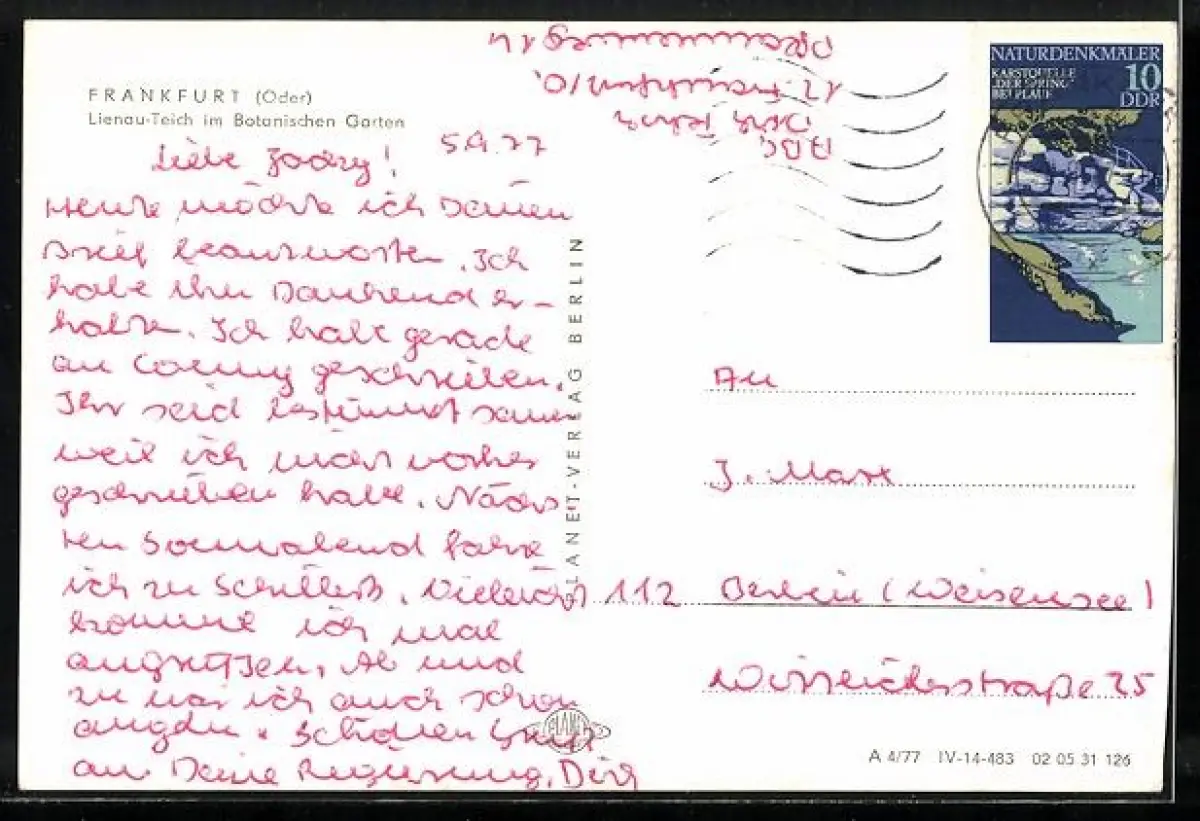 FRANKFURT (Oder)
Lienau-Teich im Botanischen Garten
5.9.77
Liebe
Heute möchte ich Deinen
Brief beantworten. Ich
habe ihn dankend er-
halten. Ich habe gerade
an Conny geschrieben.
Ihr seid bestimmt sauer
weil ich nicht vorher
geschrieben habe. Näch
ten Sonnabend fahre
ich zu Schillers. Vieleicht
komme ich mal
angewetzen. Ab und
zu war ich auch schon
angeln. Schönen Gruß
an Deine Regierung. Dirk
PLANET-VERLAG BERLIN
PLANET
Abs.
Dirk
12 Frankfurt/O.
14
NATURDENKMÄLER
KARSTQUELLE
„DER SPRING”
BEI PLAUE
10
DDR
An
J. Marx
112 Berlin (Weisensee)
25
A 4/77 IV-14-483 02 05 31 126